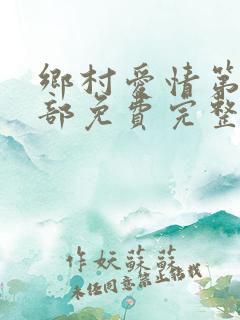 鄉村愛情第
部免費完整
作妖蘇蘇
未經同意禁止轉載